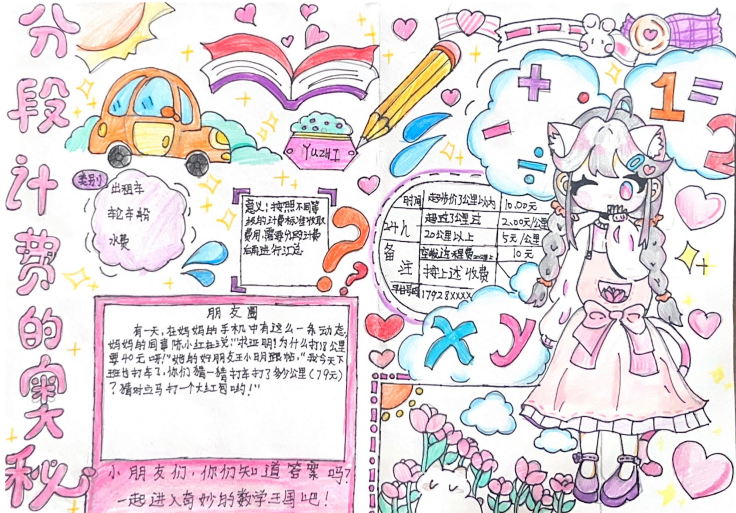 分段计费的奥秘
YuZHI
类别
出租车
轮车船
水费
意义：按照不同等
级的计费标准收取
费用，需要分段计费
后再进行汇总
时间 起步价3公里以内 10.00元
24h 超过3公里过 2.00元/公里
20公里以上 5元/公里
备注 10元
按上述收费
17928XXXX
+ - ÷
1=2
x y
朋友圈
有一天，在妈妈的手机中有这么一条动态，
妈妈的同事陈小红在说："求证明！为什么打13公里
要40元呀！"她的好朋友王小明跟帖，"我今天下
班也打车了，你们猜一猜打车打了多少公里（79元）
？猜对立马打一个大红包哟！"
小朋友们，你们知道答案吗？
一起进入奇妙的数学王国吧！